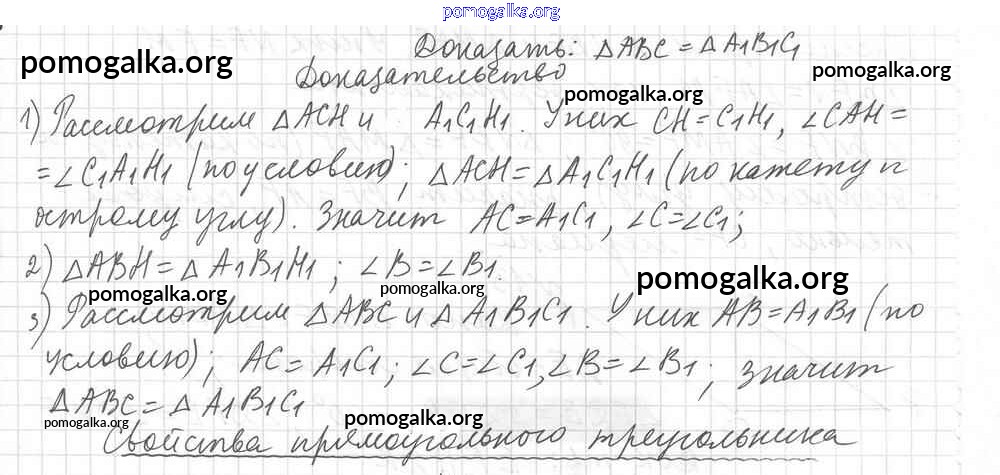 pomogalka.org
Доказать: △ABC = △A1B1C1
pomogalka.org
Доказательство
pomogalka.org
pomogalka.org
1) Рассмотрим △ACH и A1C1H1. У них CH=C1H1, ∠CAH=
=∠C1A1H1 (по условию); △ACH=△A1C1H1 (по катету и
острому углу). Значит AC=A1C1, ∠C=∠C1;
2) △ABH=△A1B1H1; ∠B=∠B1.
pomogalka.org
pomogalka.org
pomogalka.org
3) Рассмотрим △ABC и △A1B1C1. У них AB=A1B1 (по
условию); AC=A1C1; ∠C=∠C1, ∠B=∠B1; значит
△ABC=△A1B1C1
pomogalka.org
pomogalka.org
Свойства прямоугольного треугольника